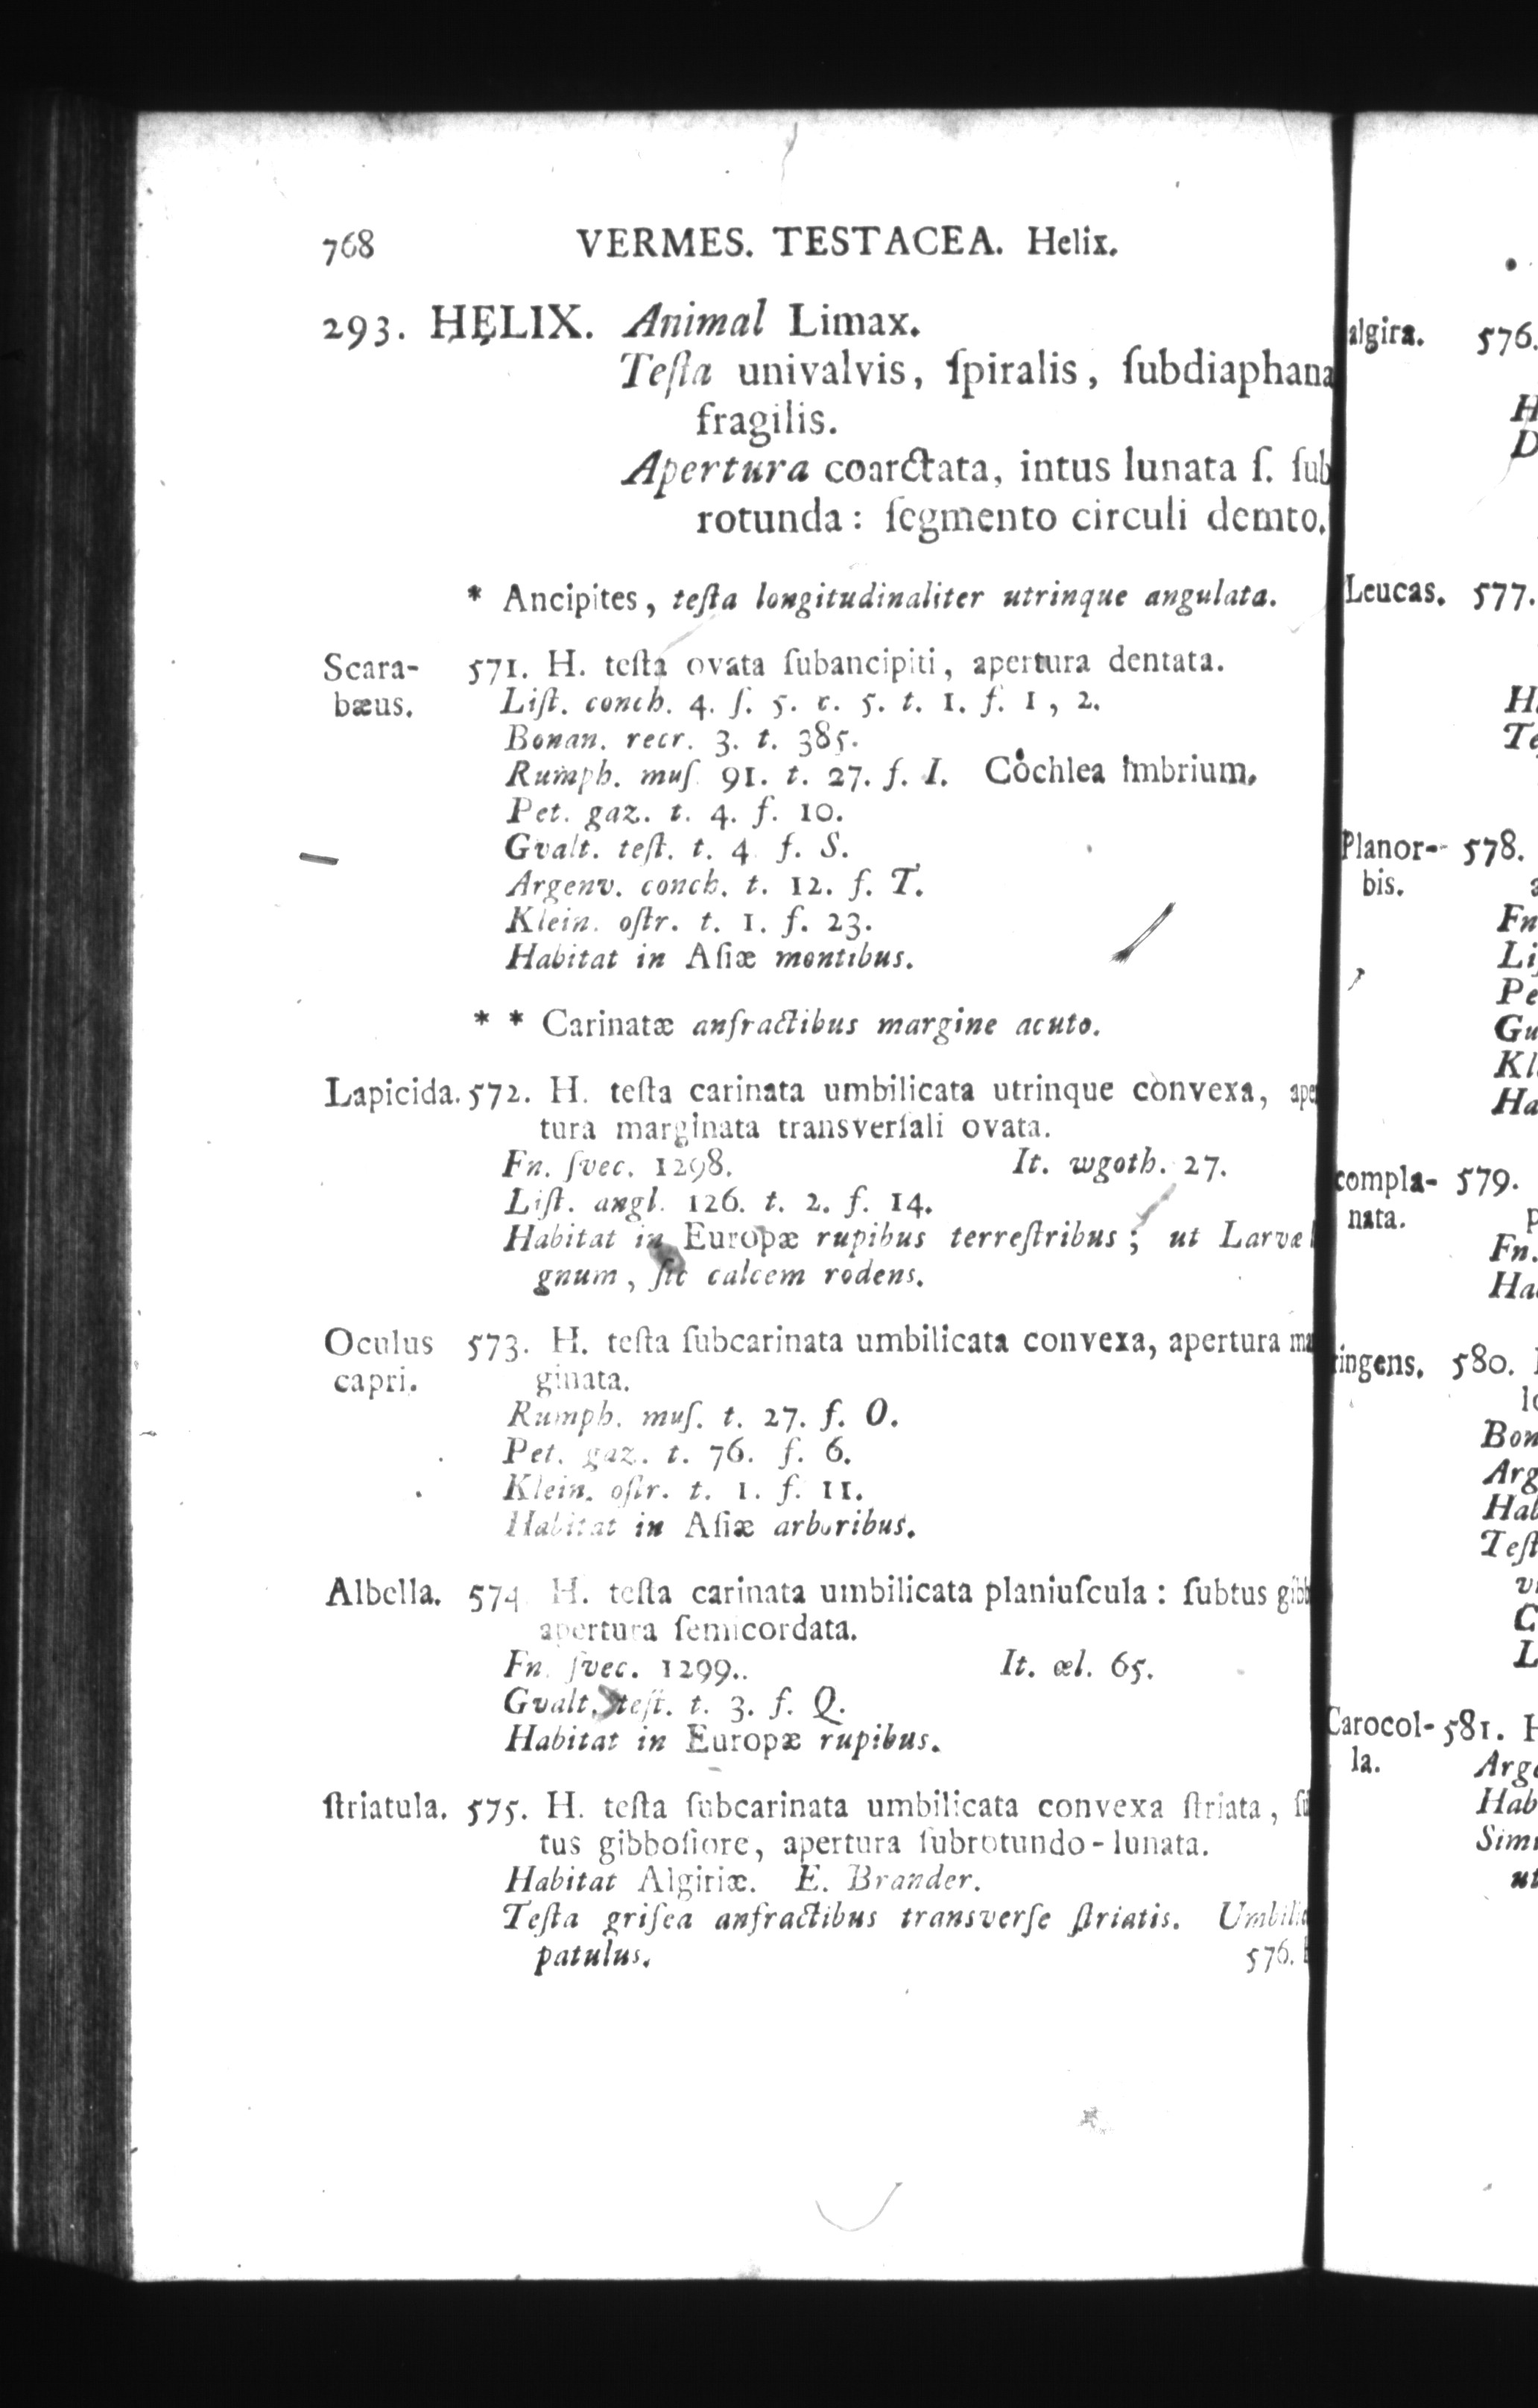 768 VERMES. TESTACEA. Helix.
293. HELIX. Animal Limax.
Teſta univalvis, ſpiralis, ſubdiaphana
fragilis.
Apertura coarctata, intus lunata ſ. ſub
rotunda: ſegmento circuli demto.
* Ancipites, teſta longitudinaliter utrinque angulata.
Scara- 571. H. teſta ovata ſubancipiti, apertura dentata.
bæus. Liſt. conch. 4. ſ. 5. c. 5. t. 1. f. 1, 2.
Bonan. recr. 3. t. 385.
Rumph. muſ 91. t. 27. f. I. Cochlea imbrium.
Pet. gaz. t. 4. f. 10.
Gvalt. teſt. t. 4 f. S.
Argenv. conch. t. 12. f. T.
Klein. oſtr. t. 1. f. 23.
Habitat in Aſiæ montibus.
* * Carinatæ anfractibus margine acuto.
Lapicida. 572. H. teſta carinata umbilicata utrinque convexa, aper
tura marginata transverſali ovata.
Fn. ſvec. 1298. It. wgoth. 27.
Liſt. angl. 126. t. 2. f. 14.
Habitat in Europæ rupibus terreſtribus; ut Larvæ
gnum, ſic calcem rodens.
Oculus 573. H. teſta ſubcarinata umbilicata convexa, apertura mar
capri. ginata.
Rumph. muſ. t. 27. f. O.
Pet. gaz. t. 76. f. 6.
Klein. oſtr. t. 1. f. 11.
Habitat in Aſiæ arboribus.
Albella. 574 H. teſta carinata umbilicata planiuſcula: ſubtus gibb
apertura ſemicordata.
Fn. ſvec. 1299.. It. œl. 65.
Gvalt. teſt. t. 3. f. Q.
Habitat in Europæ rupibus.
ſtriatula. 575. H. teſta ſubcarinata umbilicata convexa ſtriata, ſu
tus gibboſiore, apertura ſubrotundo-lunata.
Habitat Algiriæ. E. Brander.
Teſta griſea anfractibus transverſe ſtriatis. Umbilic
patulus.
576. H
algira. 576.
H
D
Leucas. 577.
H.
Te
Planor- 578.
bis.
Fn
Liſ
Pe
Gu
Kl
Ha
compla- 579.
nata. p
Fn.
Ha
ringens. 580.
lo
Bon
Arg
Hab
Teſt
C
L
Carocol- 581. H
la. Arge
Hab
Simi
ut